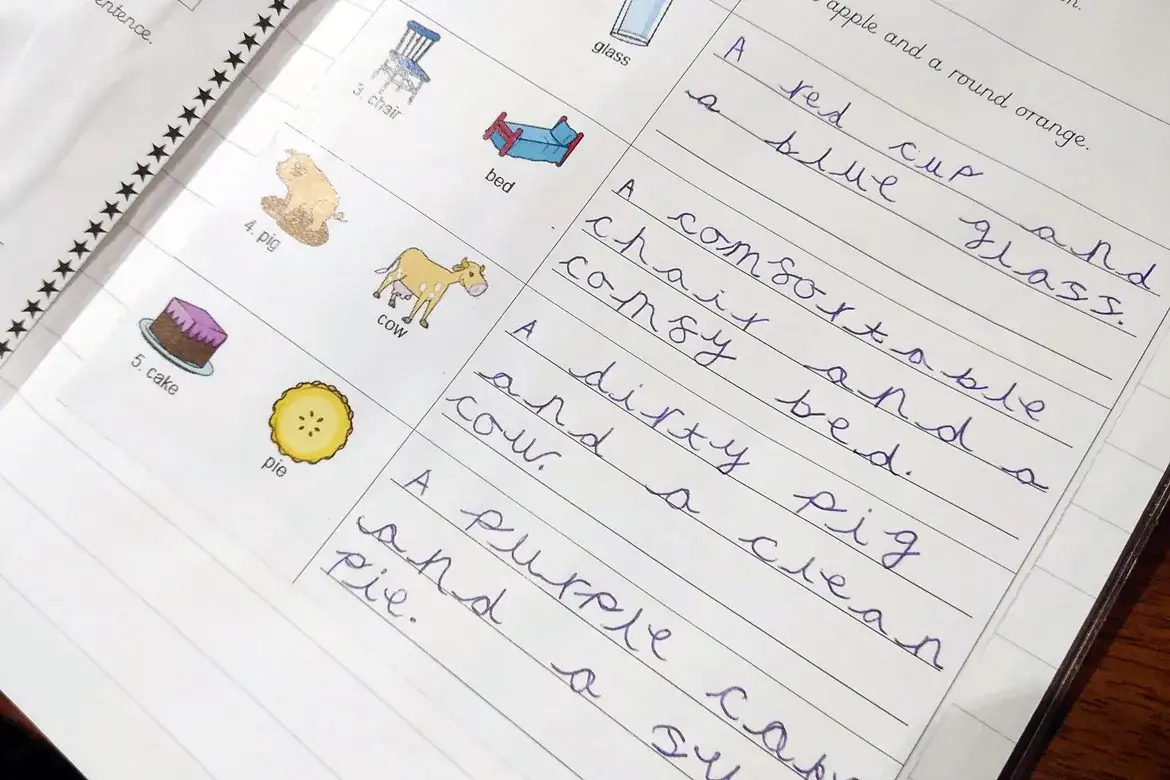 entence.
glass
3. chair
bed
4. pig
cow
5. cake
pie
apple and a round orange.
A red cup and
a blue glass.
A comfortable
chair and a
comfy bed.
A dirty pig
and a clean
cow.
A purple
and a
pie.